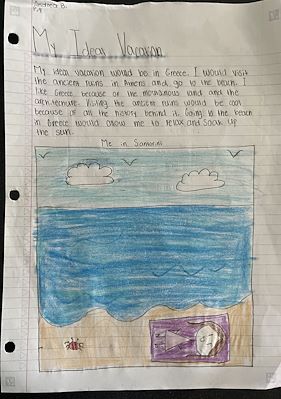 Andrea B.
My Ideal Vacation
My ideal vacation would be in Greece. I would visit
the ancient ruins in Athens and go to the beach. I
like Greece because of the mountainous land and the
architecture. Visiting the ancient ruins would be cool
because of all the history behind it. Going to the beach
in Greece would allow me to relax and soak up
the sun.
Me in Santorini